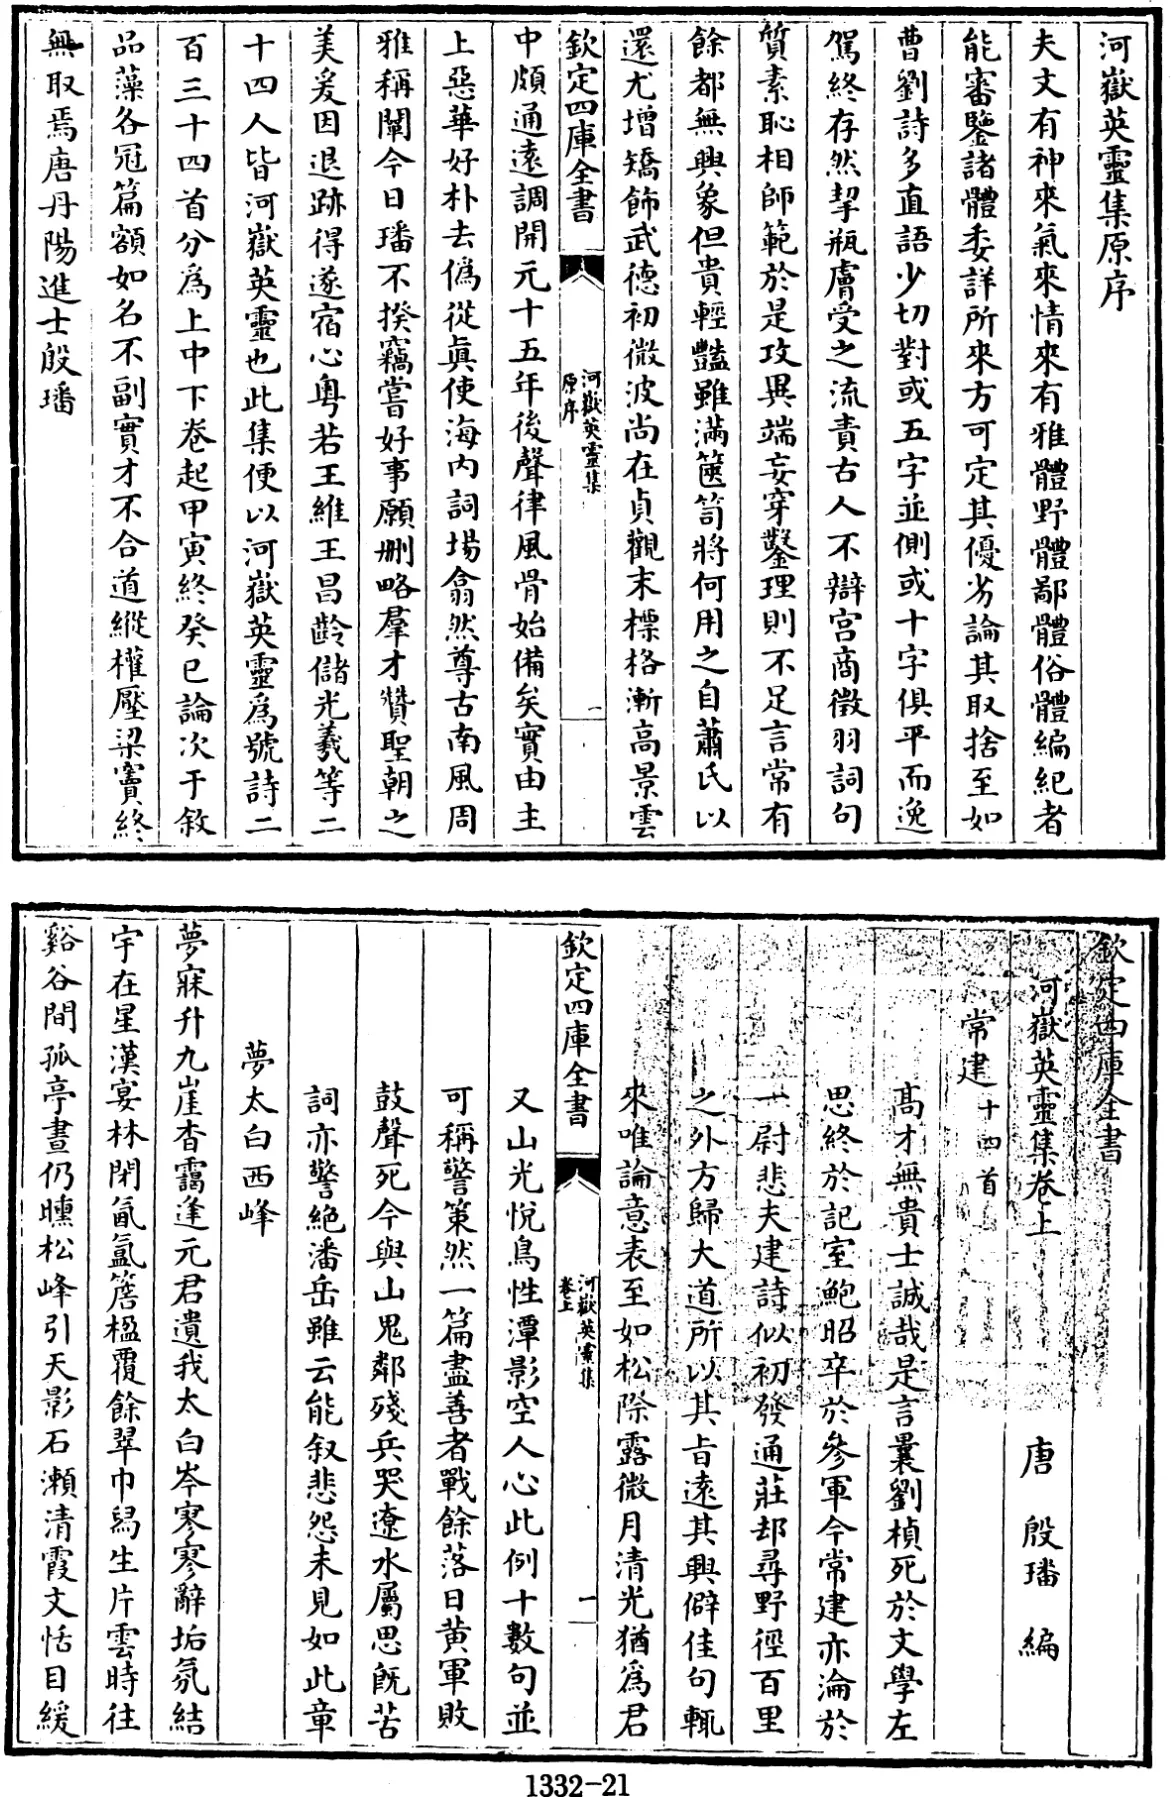 河嶽英靈集原序
夫文有神來氣來情來有雅體野體鄙體俗體編紀者
能審鑒諸體委詳所來方可定其優劣論其取捨至如
曹劉詩多直語少切對或五字並側或十字俱平而逸
駕終存然挈瓶膚受之流責古人不辯宮商徵羽詞句
質素恥相師範於是攻異端妄穿鑿理則不足言常有
餘都無興象但貴輕豔雖滿篋笥將何用之自蕭氏以
還尤增矯飾武德初微波尚在貞觀末標格漸高景雲
欽定四庫全書
河嶽英靈集
原序
一
中頗通遠調開元十五年後聲律風骨始備矣實由主
上惡華好朴去偽從真使海內詞場翕然尊古南風周
雅稱闡今日璠不揆竊嘗好事願刪略羣才贊聖朝之
美爰因退跡得遂宿心粤若王維王昌齡儲光羲等二
十四人皆河嶽英靈也此集便以河嶽英靈為號詩二
百三十四首分為上中下卷起甲寅終癸巳論次于敘
品藻各冠篇額如名不副實才不合道縱權壓梁竇終
無取焉唐丹陽進士殷璠
欽定四庫全書
河嶽英靈集卷上
唐 殷璠 編
常建十四首
高才無貴士誠哉是言曩劉楨死於文學左
思終於記室鮑昭卒於參軍今常建亦淪於
一尉悲夫建詩似初發通莊却尋野徑百里
之外方歸大道所以其旨遠其興僻佳句輒
來唯論意表至如松際露微月清光猶為君
欽定四庫全書
河嶽英靈集
卷上
一
又山光悅鳥性潭影空人心此例十數句並
可稱警策然一篇盡善者戰餘落日黃軍敗
鼓聲死今與山鬼鄰殘兵哭遼水屬思既苦
詞亦警絕潘岳雖云能敘悲怨未見如此章
夢太白西峰
夢寐升九崖杳靄逢元君遺我太白岑寥寥辭垢氛結
宇在星漢宴林閉氤氳簷楹覆餘翠巾舄生片雲時往
谿谷間孤亭晝仍曛松峰引天影石瀨清霞文恬目緩
1332-21